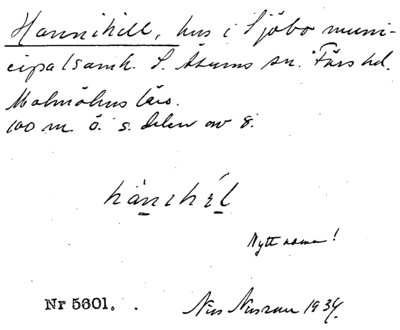 Hannihill, hus i Sjöbo muni-
cipalsamh. S. Åsums sn. Färs hd.
Malmöhus län.
100 m. ö. s. delen av 8.
hànihél
Nytt namn!
Nr 5601.
Nils 1934.